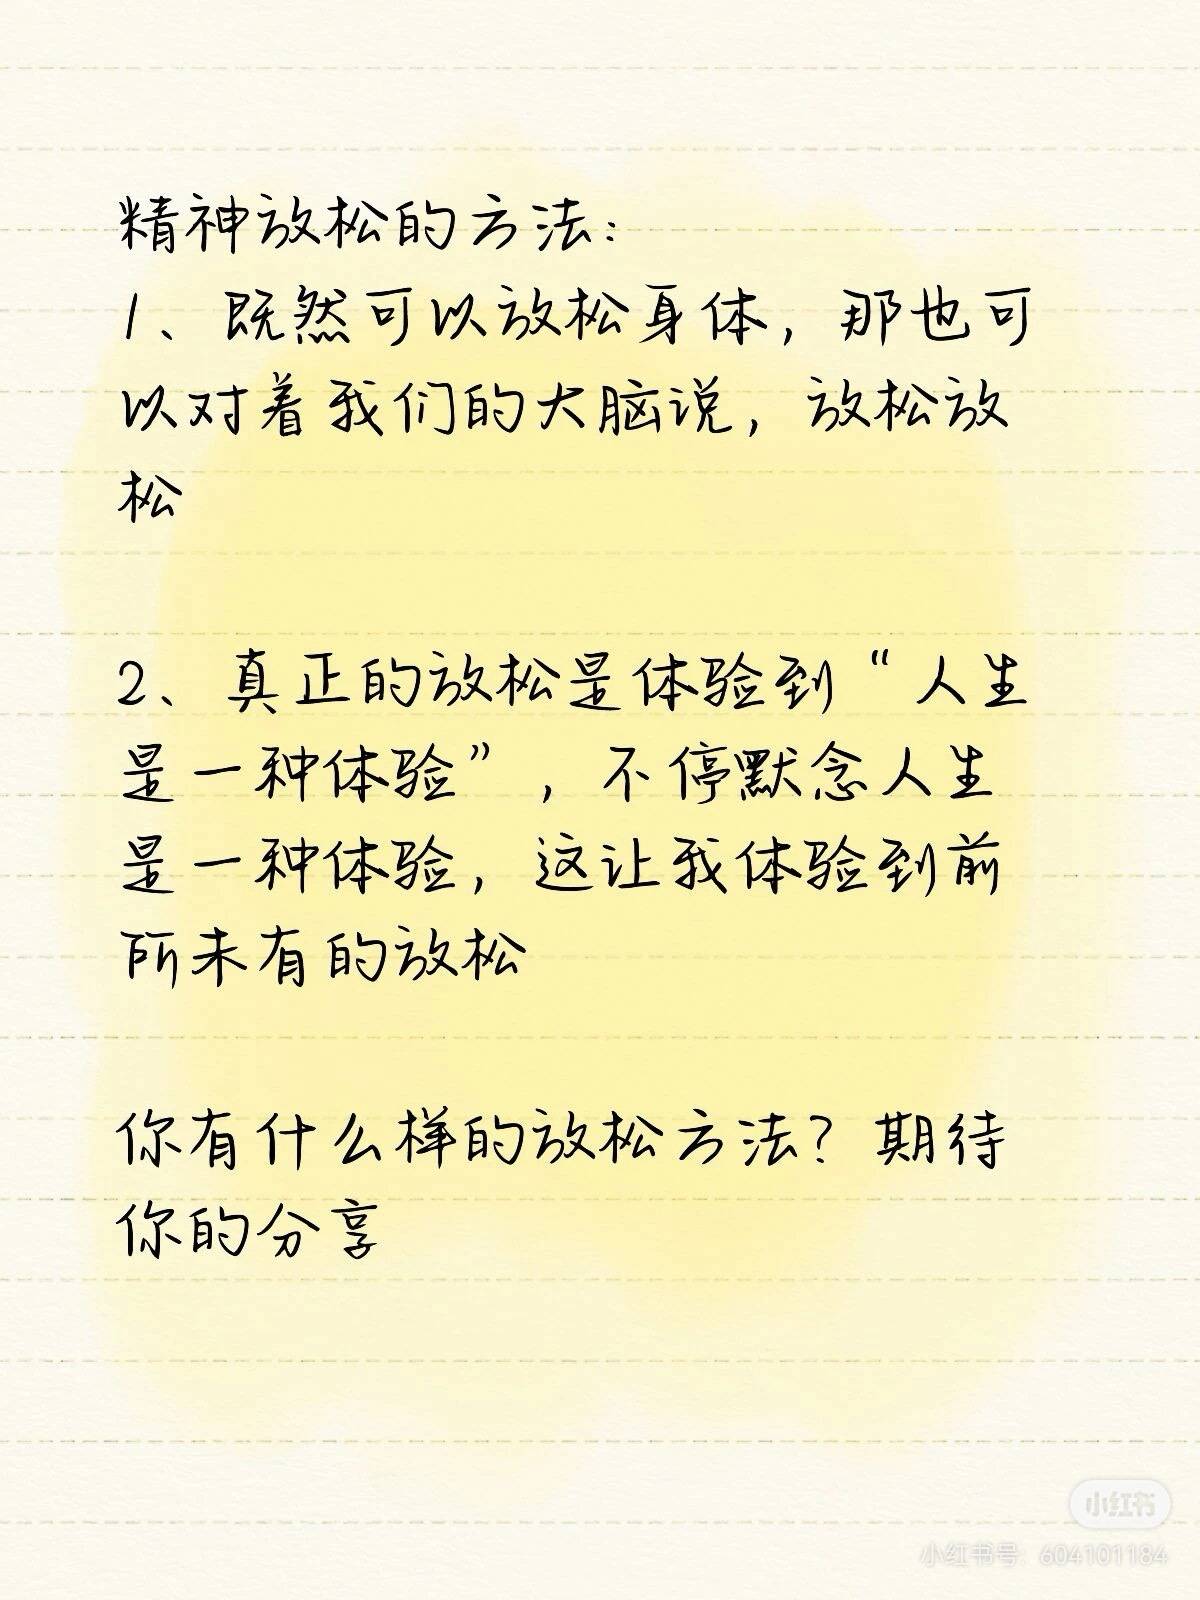 精神放松的方法：
1、既然可以放松身体，那也可
以对着我们的大脑说，放松放
松
2、真正的放松是体验到“人生
是一种体验”，不停默念人生
是一种体验，这让我体验到前
所未有的放松
你有什么样的放松方法？期待
你的分享
小红书
小红书号: 604101184